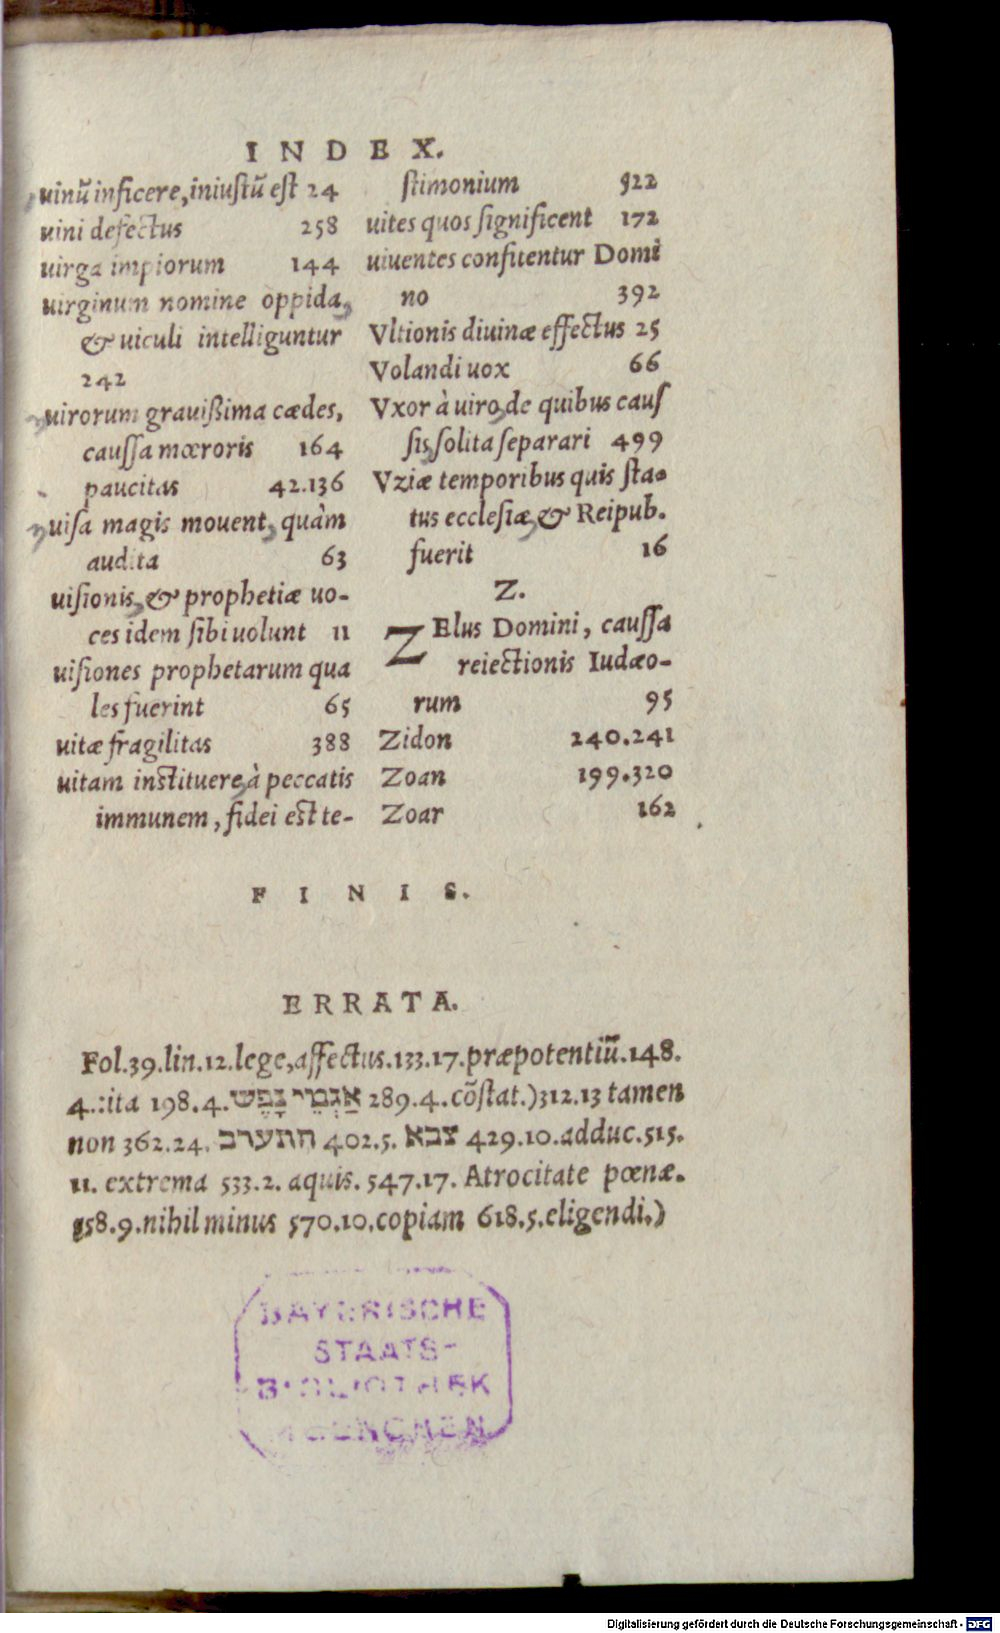 INDEX.
uinū inficere, iniuſtū eſt 24
uini defectus 258
uirga impiorum 144
uirginum nomine oppida,
& uiculi intelliguntur
242
uirorum grauißima cædes,
cauſſa mœroris 164
paucitas 42.136
uiſa magis mouent, quàm
audita 63
uiſionis, & prophetiæ uo-
ces idem ſibi uolunt 11
uiſiones prophetarum qua
les fuerint 65
uitæ fragilitas 388
uitam inſtituere, à peccatis
immunem, fidei eſt te-
ſtimonium 922
uites quos ſignificent 172
uiuentes confitentur Domi
no 392
Vltionis diuinæ effectus 25
Volandi uox 66
Vxor à uiro, de quibus cauſ
ſis, ſolita ſeparari 499
Vziæ temporibus quis ſta-
tus eccleſiæ, & Reipub.
fuerit 16
Z.
ZElus Domini, cauſſa
reiectionis Iudæo-
rum 95
Zidon 240.241
Zoan 199.320
Zoar 162
FINIS.
ERRATA.
Fol.39.lin.12.lege, affectus.133.17.præpotentiū.148.
4.:ita 198.4. אַגְמֵי נָפֶש 289.4.cōſtat.)312.13 tamen
non 362.24. התערב 402.5. צבא 429.10.adduc.515.
11. extrema 533.2. aquis. 547.17. Atrocitate pœnæ.
558.9.nihil minus 570.10.copiam 618.5.eligendi.)
BAYERISCHE
STAATS-
BIBLIOTHEK
MUENCHEN
Digitalisierung gefördert durch die Deutsche Forschungsgemeinschaft - DFG